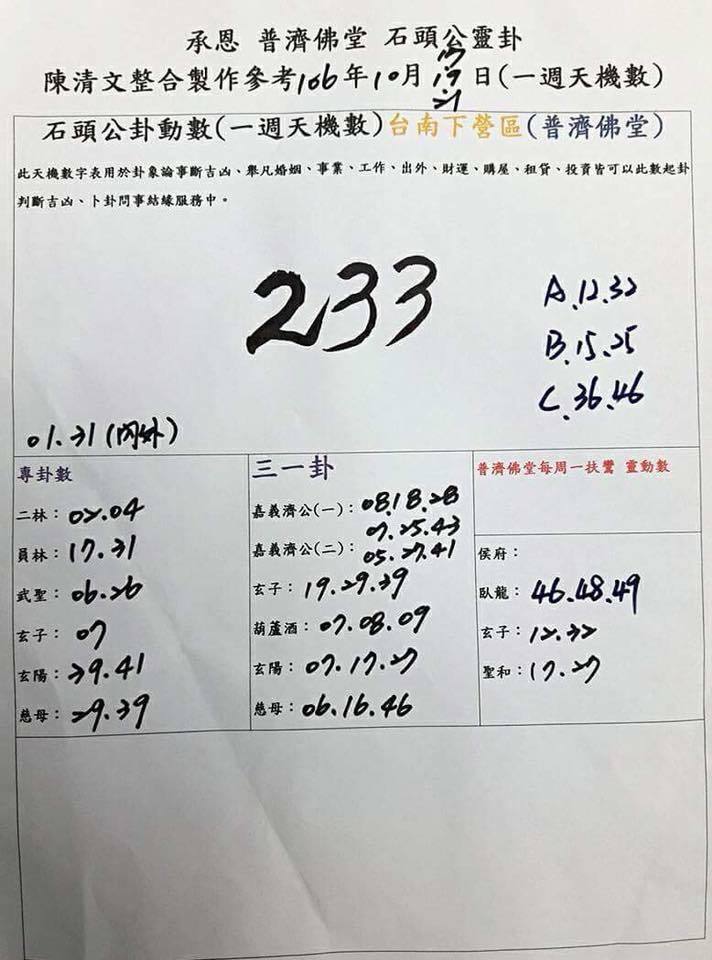 承恩 普濟佛堂 石頭公靈卦
陳清文整合製作參考106年10月17.19.21日(一週天機數)
石頭公卦動數(一週天機數)台南下營區(普濟佛堂)
此天機數字表用於卦象論事斷吉凶、舉凡婚姻、事業、工作、出外、財運、購屋、租貸、投資皆可以此數起卦
判斷吉凶、卜卦問事結緣服務中。
233
A.12.32
B.15.25
C.36.46
01.31(內外)
專卦數
二林：02.04
員林：17.31
武聖：06.26
玄子：07
玄陽：39.41
慈母：29.39
三一卦
嘉義濟公(一)：08.18.28
07.25.43
嘉義濟公(二)：05.27.41
玄子：19.29.39
葫蘆酒：07.08.09
玄陽：07.17.27
慈母：06.16.46
普濟佛堂每周一扶鸞 靈動數
侯府：
臥龍：46.48.49
玄子：12.32
聖和：17.27